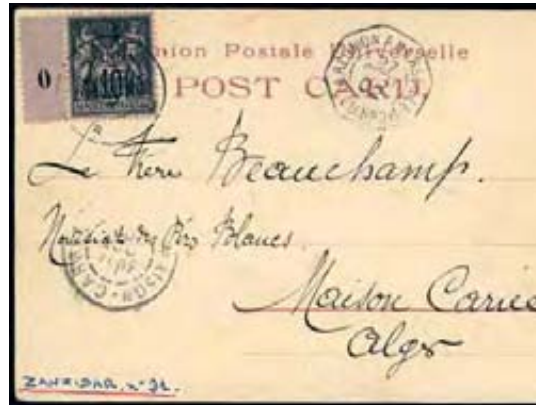 Union Postale Universelle
0
POST CARD
Le Frère Beauchamp.
Noviciat des Pères Blancs
Maison Carrée
Alger
MAISON-CARR
ZANZIBAR, n° 32.